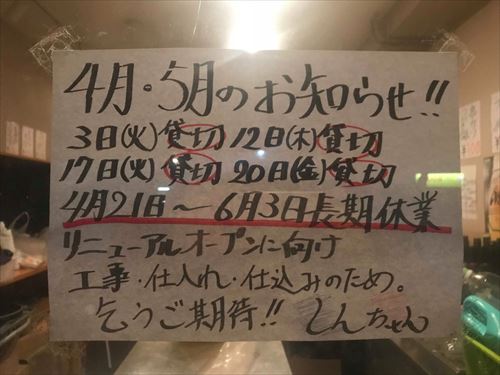 4月・5月のお知らせ!!
3日(火)貸切 12日(木)貸切
17日(火)貸切 20日(金)貸切
4月21日～6月3日長期休業
リニューアルオープンに向け
工事・仕入れ・仕込みのため。
乞うご期待!! しんちゃん